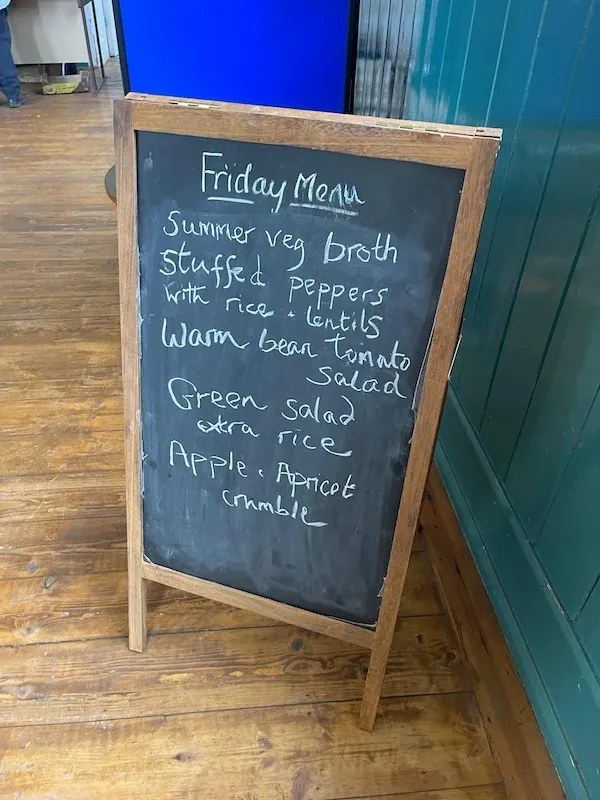 Friday Menu
Summer veg broth
Stuffed peppers
with rice + lentils
Warm bean tomato
salad
Green salad
extra rice
Apple + Apricot
crumble